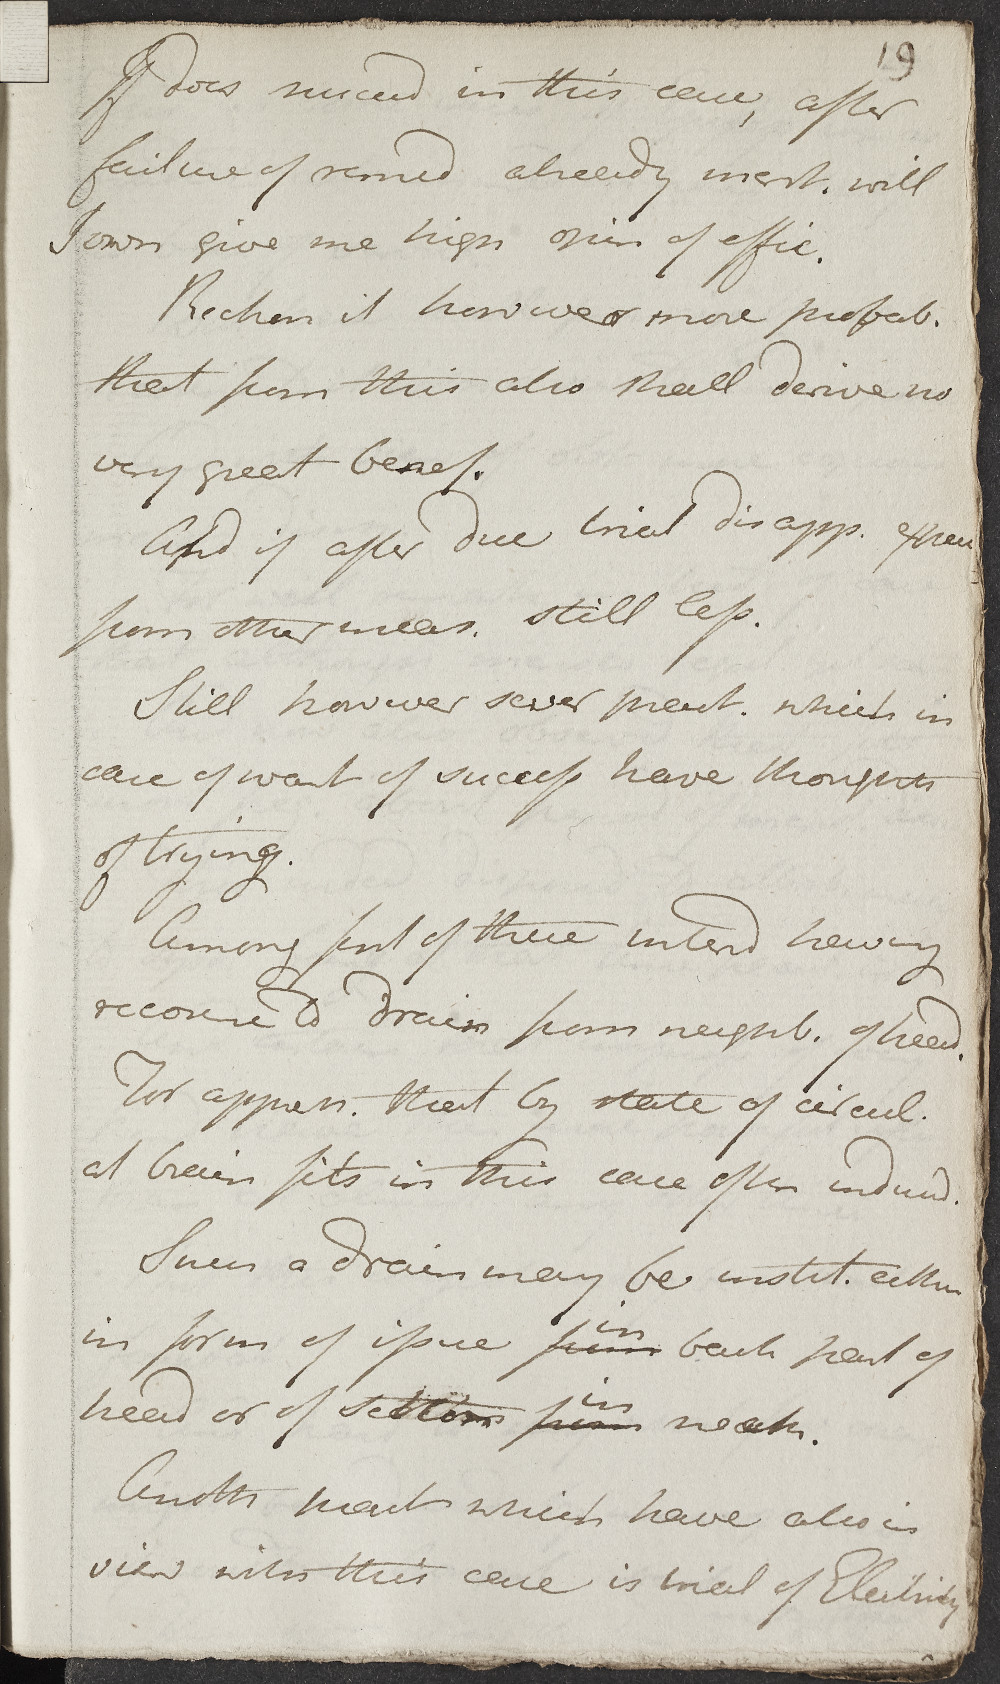 19
If does succeed in this case, after
failure of remed already ment. will
I own give me high opin of effic.
Reckon it however more probab.
that from this also shall derive no
very great benef.
And if after due trial disapp. expec
from other meas. still less.
Still however sever pract. which in
case of want of success have thoughts
of trying.
Among first of these intend having
recourse to drain from neighb. of head.
For appreh. that by state of circul.
at brain fits in this case often induced.
Such a drain may be instit. either
in form of issue from in back part of
head or of setton from in neck.
Anoth pract which have also in
view with this case is trial of Electricity